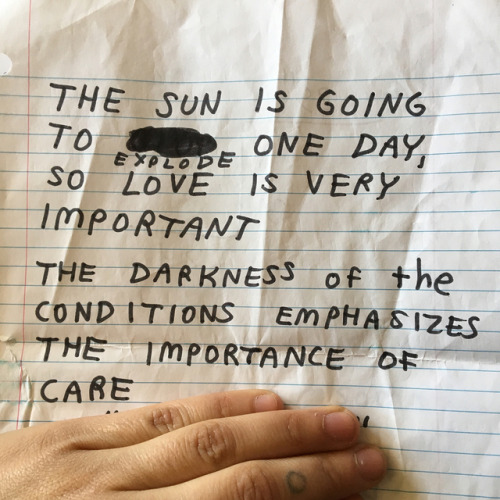 THE SUN IS GOING
TO ONE DAY,
EXPLODE
SO LOVE IS VERY
IMPORTANT
THE DARKNESS of the
CONDITIONS EMPHASIZES
THE IMPORTANCE OF
CARE